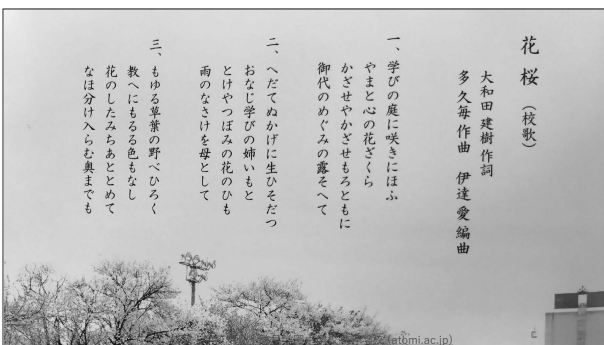 花桜（校歌）
大和田建樹作詞
多久毎作曲　伊達愛編曲
一、学びの庭に咲きにほふ
やまと心の花ざくら
かざせやかざせもろともに
御代のめぐみの露そへて
二、へだてぬかげに生ひそだつ
おなじ学びの姉いもと
とけやつぼみの花のひも
雨のなさけを母として
三、もゆる草葉の野べひろく
教へにもるる色もなし
花のしたみちあととめて
なほ分け入らむ奥までも
(atomi.ac.jp)